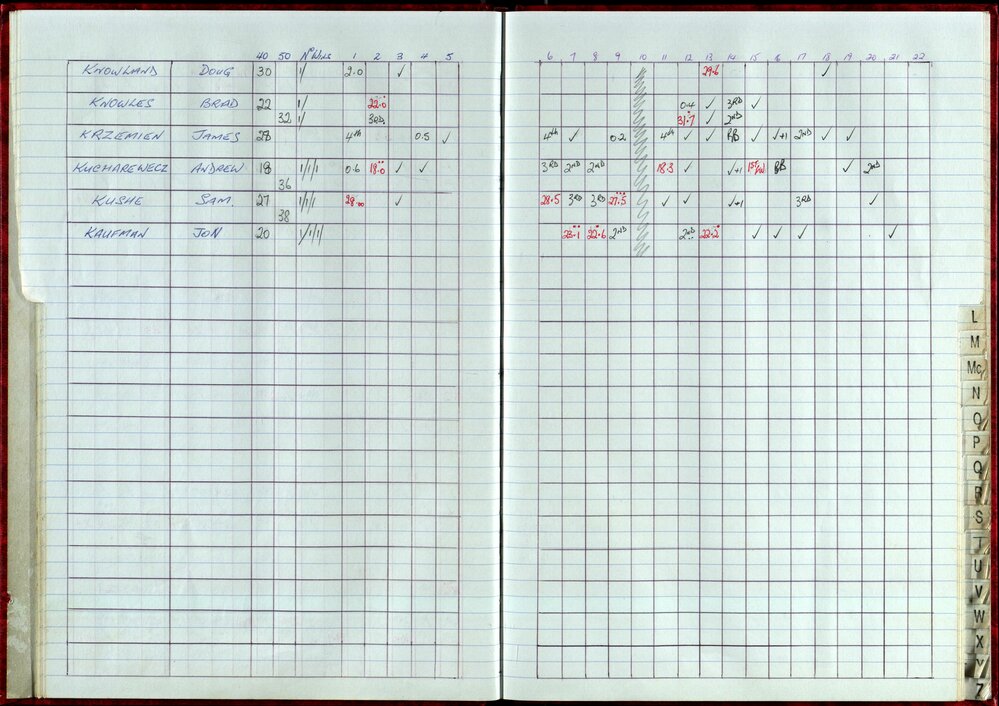 40 50 NºWKS 1 2 3 4 5 6 7 8 9 10 11 12 13 14 15 16 17 18 19 20 21 22
KNOWLAND DOUG 30 1/ 2.0 ✓ 29.6 ✓
KNOWLES BRAD 22 1/ 22.0 0.4 ✓ 3RD ✓
32 1/ 3RD 31.7 ✓ 2ND
KRZEMIEN JAMES 28 4th 0.5 ✓ 4th ✓ 0.2 4th ✓ ✓ ✓ ✓+1 2ND ✓ ✓
KUCHAREWECZ ANDREW 18 1/1/1 0.6 18.0 ✓ ✓ 3RD 2ND 2ND 18.3 ✓ ✓+1 ✓ 2ND
36
KUSHE SAM 27 1/1/1 28.00 ✓ 28.5 3RD 3RD 27.5 ✓ ✓ ✓+1 3RD ✓
38
KAUFMAN JON 20 1/1/1/ 23.1 22.6 2ND 2ND 22.2 ✓ ✓ ✓ ✓
L
M
Mc
N
O
P
Q
R
S
T
U
V
W
X
Y
Z